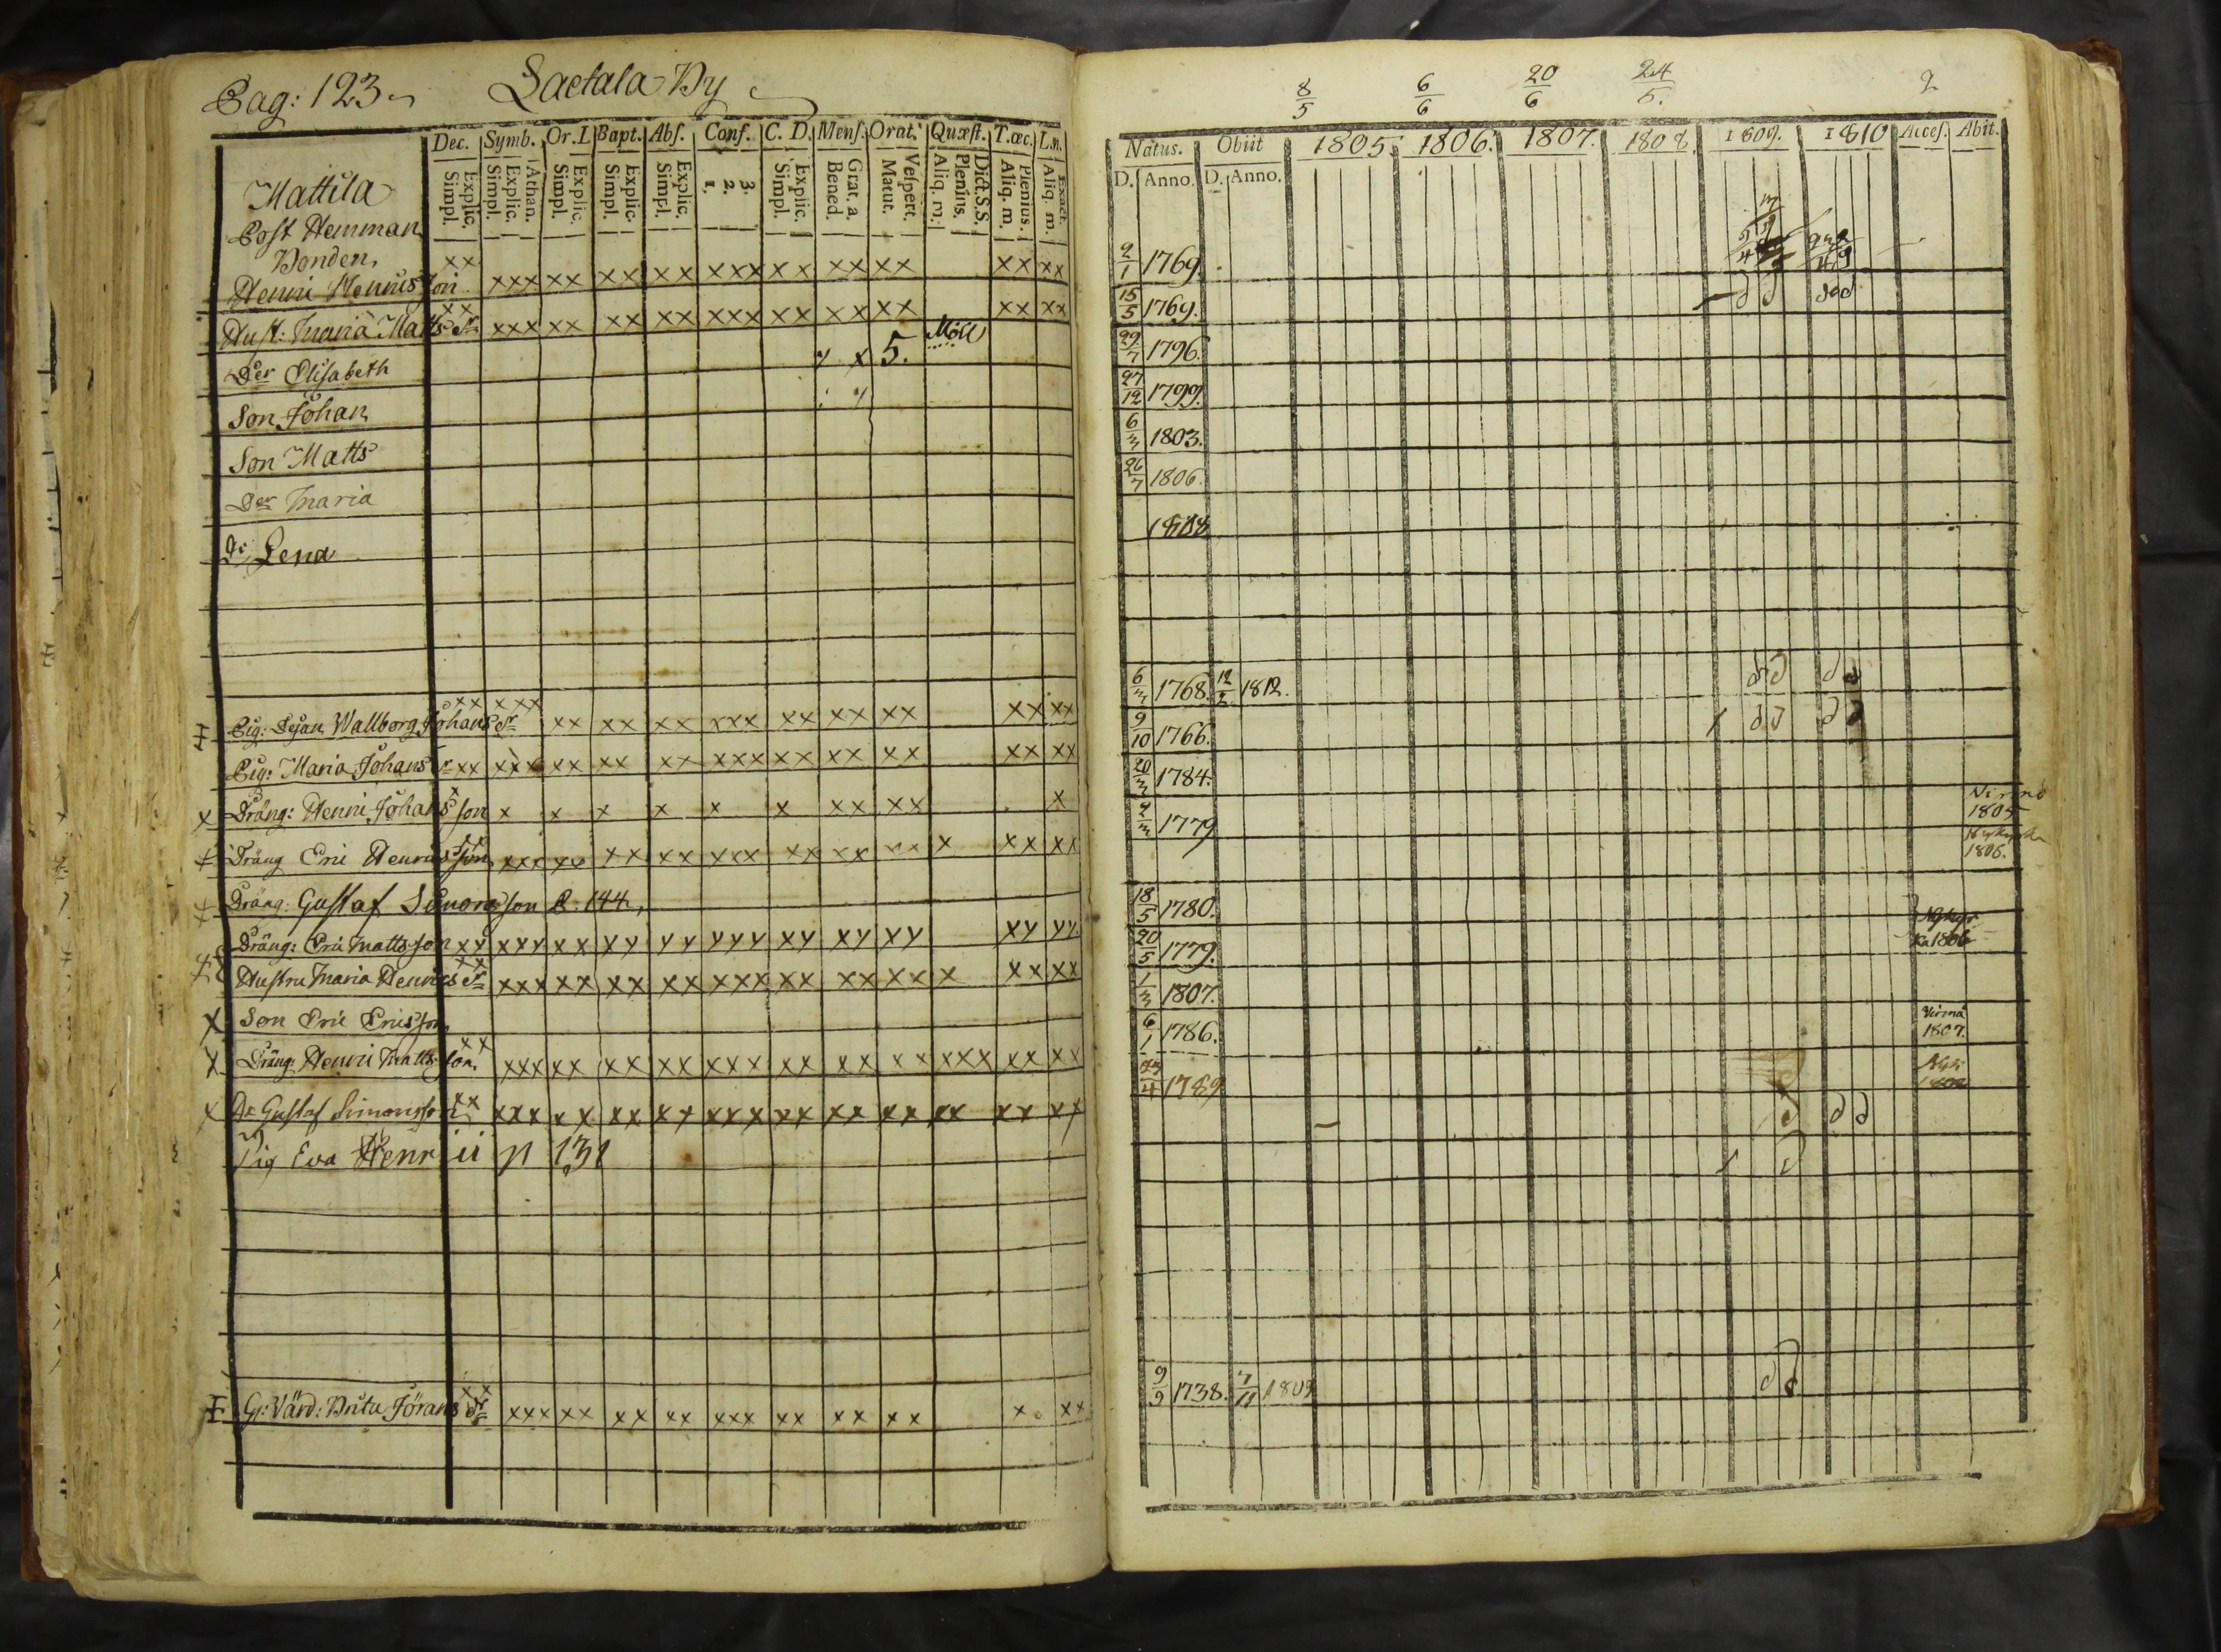 Pag: 123
Laetala By
Dec. Symb. Or. D. Bapt. Abſ. Conf. C. D. Menſ. Orat. Quæſt. T. œc. L. n.
Explic. Simpl. Athan. Explic. Simpl. Explic. Simpl. Explic. Simpl. Explic. Simpl. 3. 2. 1. Explic. Simpl. Grat. a. Bened. Veſpert. Matut. Dict. S. S. Plenius. Aliq. m. Plenius. Aliq. m. Exact. Aliq. m.
Mattila
Post Hemman
Bonden,
Henric Henricsson xx xxx xx xx xx xxx xx xx xx xx xx
Hust: Maria Matts dr xx xxx xx xx xx xxx xx xx xx xx xx
Der Elisabeth x 5.
Son Johan
Son Matts
Der Maria
Dr Lena
Pig: Dejan Wallborg Johans dr xx xxx xx xx xx xxx xx xx xx xx xx
Pig: Maria Johans dr xx xxx xx xx xx xxx xx xx xx xx xx
x Dräng: Henric Johansson x x x x x x x xx xx x
Dräng Eric Henricsson xx xxx xx xx xx xxx xx xx xx x xx xx
Dräng: Gustaf Simonsson P. 144,
Dräng: Eric Mattsson xx xxx xx xx xx xxx xx xx xx xx xx
Hustru Maria Henrics dr xx xxx xx xx xx xxx xx xx xx x xx xx
x Son Eric Ericsson
x Dräng: Henric Mattsson xx xxx xx xx xx xxx xx xx xx xxx xx xx
x Dr Gustaf Simonsson xx xxx xx xx xx xxx xx xx xx xx xx xx
Pig Eva Henr
G: Värd: Brita Jörans dr xx xxx xx xx xx xxx xx xx xx x xx
8/5 6/6 20/6 24/5.
Natus. Obiit 1805. 1806. 1807. 1808. 1809. 1810 Acceſ. Abit.
D. Anno. D. Anno.
2/1 1769.
15/5 1769.
29/7 1796.
27/12 1799.
6/3 1803.
26/7 1806.
1808
6/3 1768. 1812.
9/10 1766.
20/3 1784.
1805
2/3 1779
1806.
18/5 1780.
20/5 1779. 1806
1/3 1807.
6/1 1786. Virmå
1807.
1789
9/9 1738. 7/11 1809